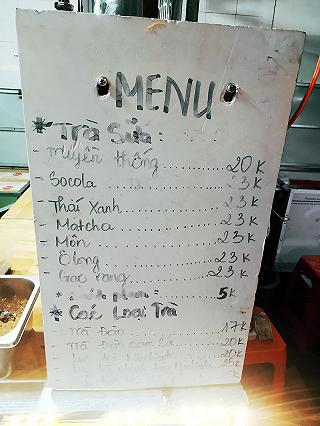 MENU
* Trà Sữa:
- Truyền thống ........ 20K
- Socola ........ 23K
- Thái Xanh ........ 23K
- Matcha ........ 23K
- Môn ........ 23K
- Ôlong ........ 23K
- Gạo rang ........ 23K
5K
* Các Loại Trà
Trà Đào ........ 17K
Trà Đào Cam Sả ........ 20K
20K
25K